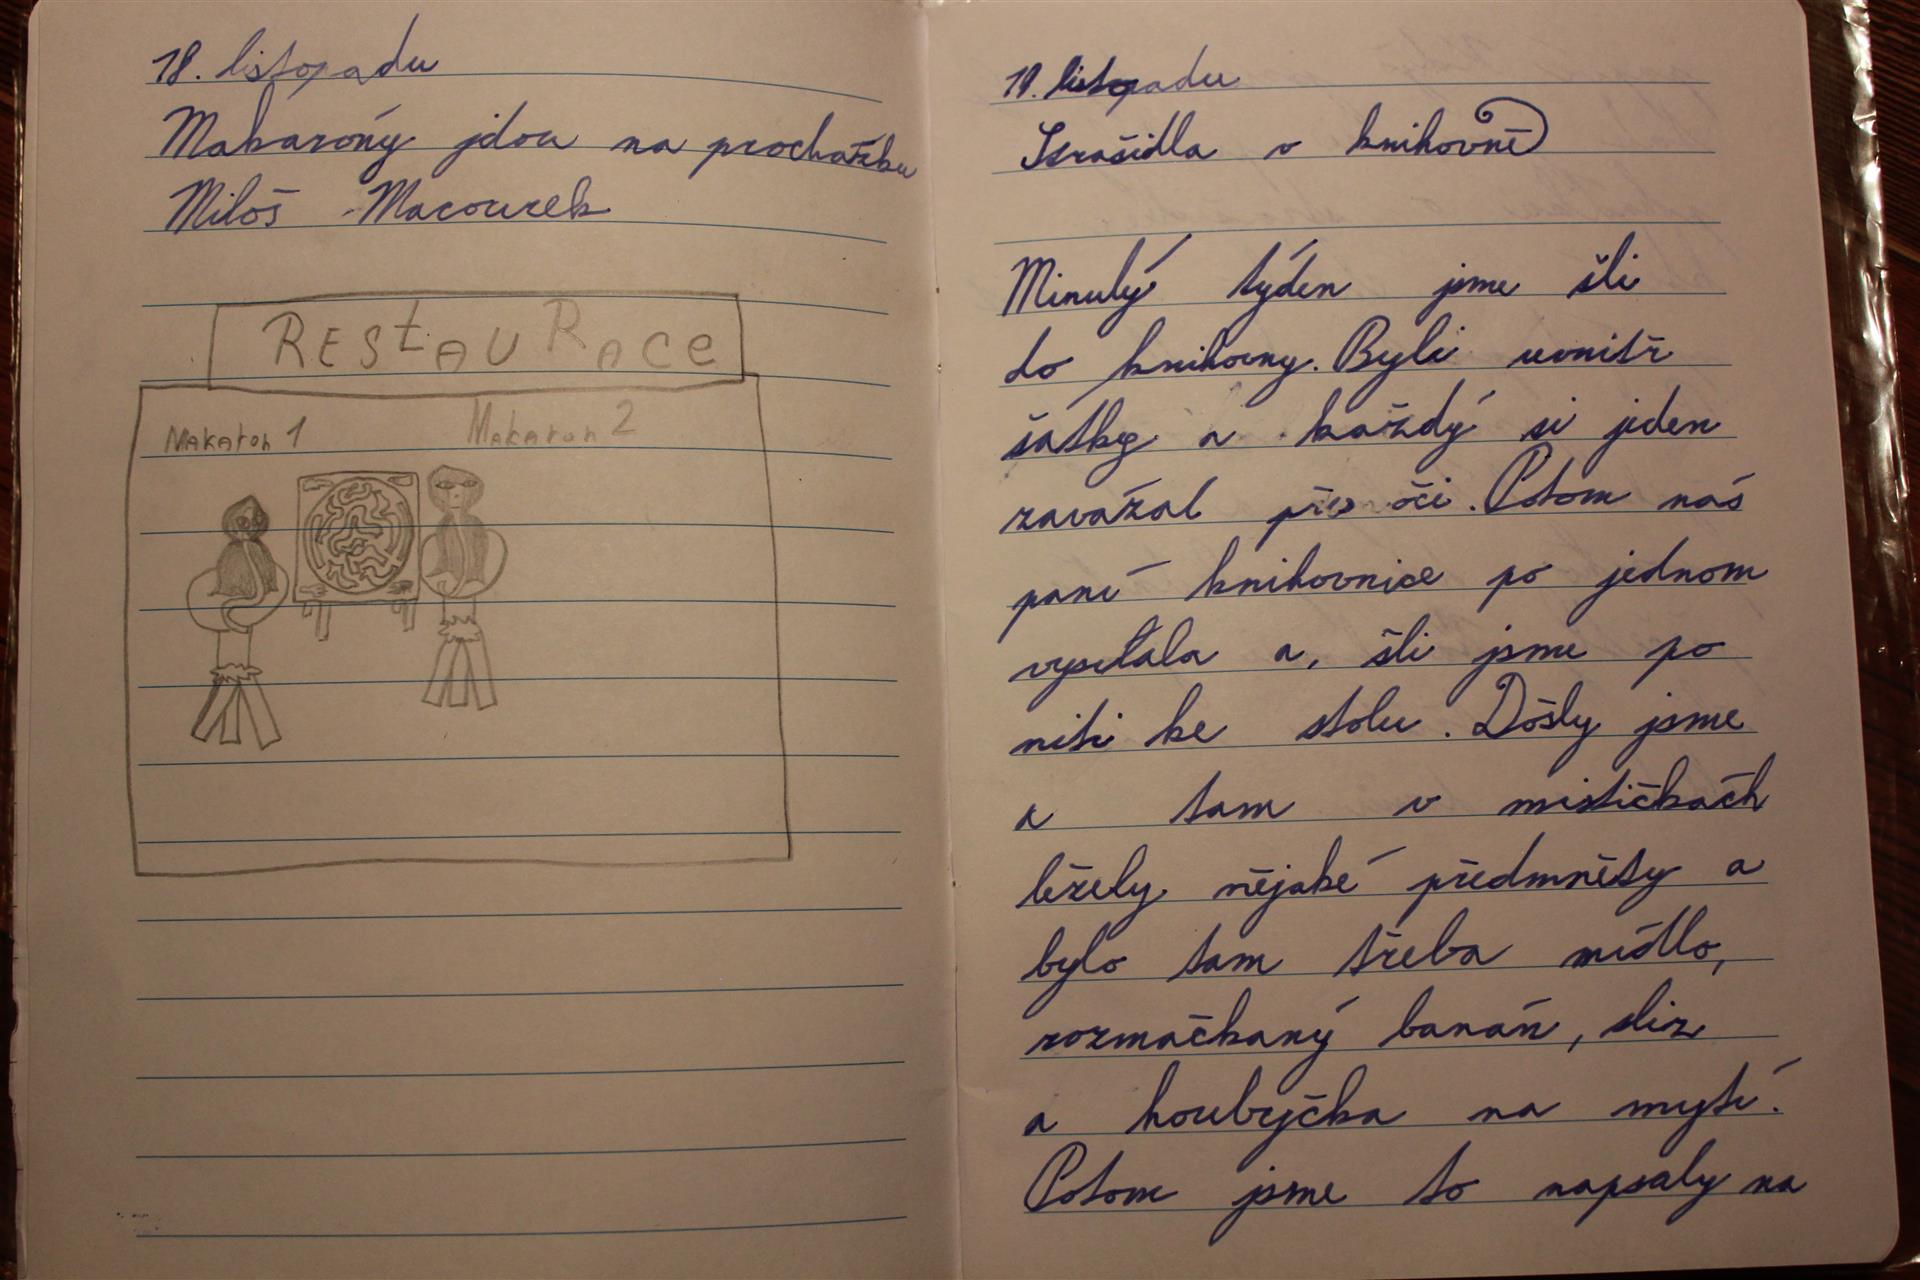 18. listopadu
Makarony jdou na procházku
Miloš Macourek
REStAURACe
Makaron 1
Makaron 2
19. listopadu
Strašidla v knihovně
Minulý týden jsme šli
do knihovny. Byli uvnitř
šátky a každý si jeden
zavázal přes oči. Potom nás
paní knihovnice po jednom
vysílala a, šli jsme po
niti ke stolu. Došly jsme
a tam v mističkách
ležely nějaké předmněty a
bylo tam třeba mídlo,
rozmačkaný banán, sliz
a houbyčka na mytí.
Potom jsme to napsaly na